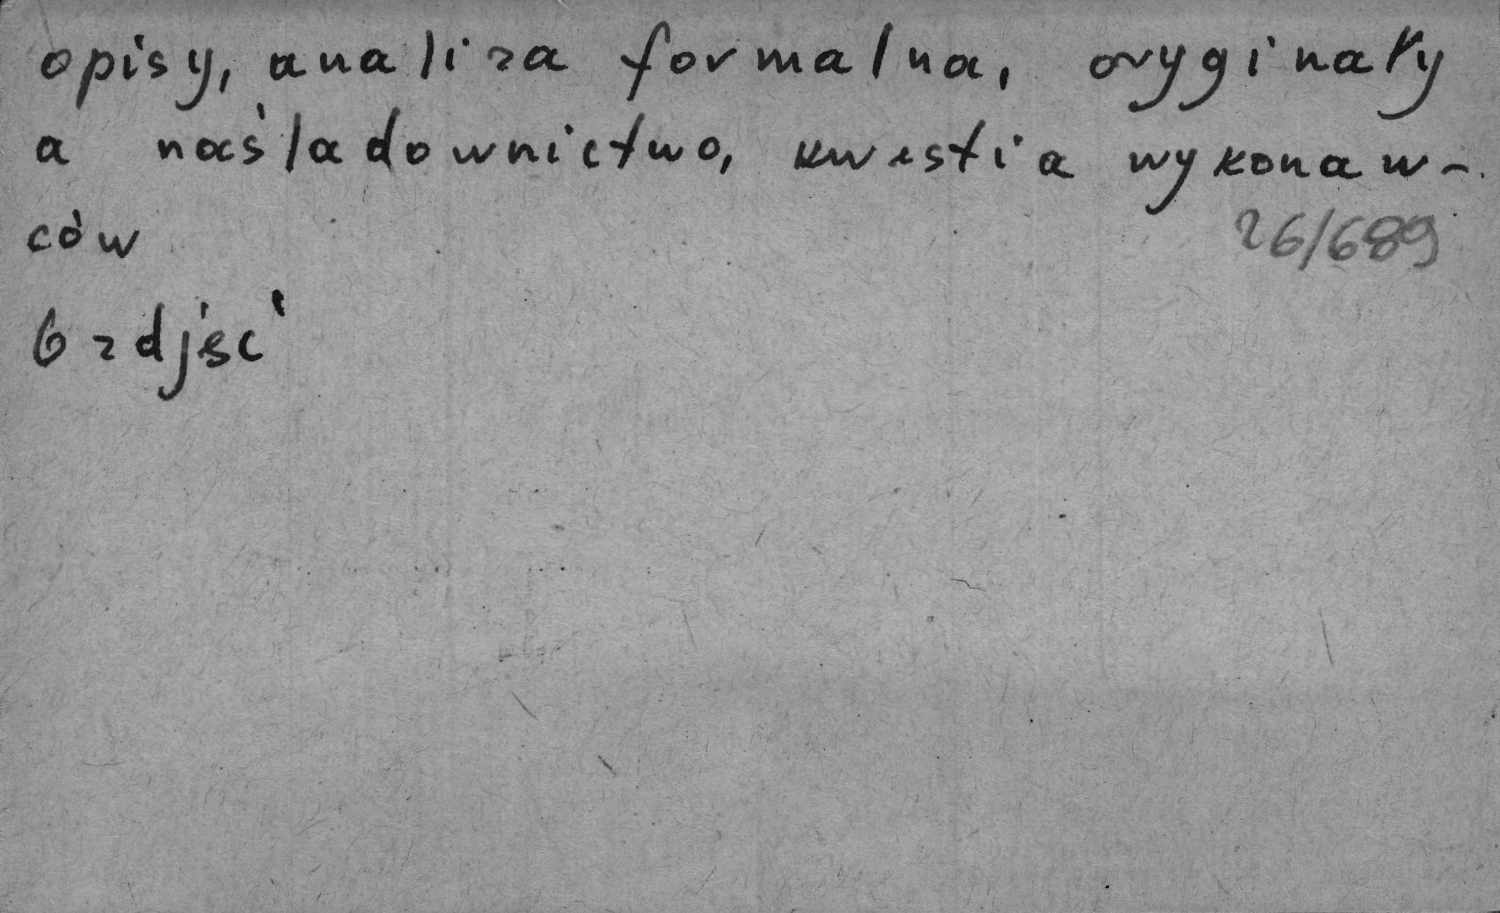 opisy, analiza formalna, oryginały
a naśladownictwo, kwestia wykonaw-
ców
26/689
6 zdjść